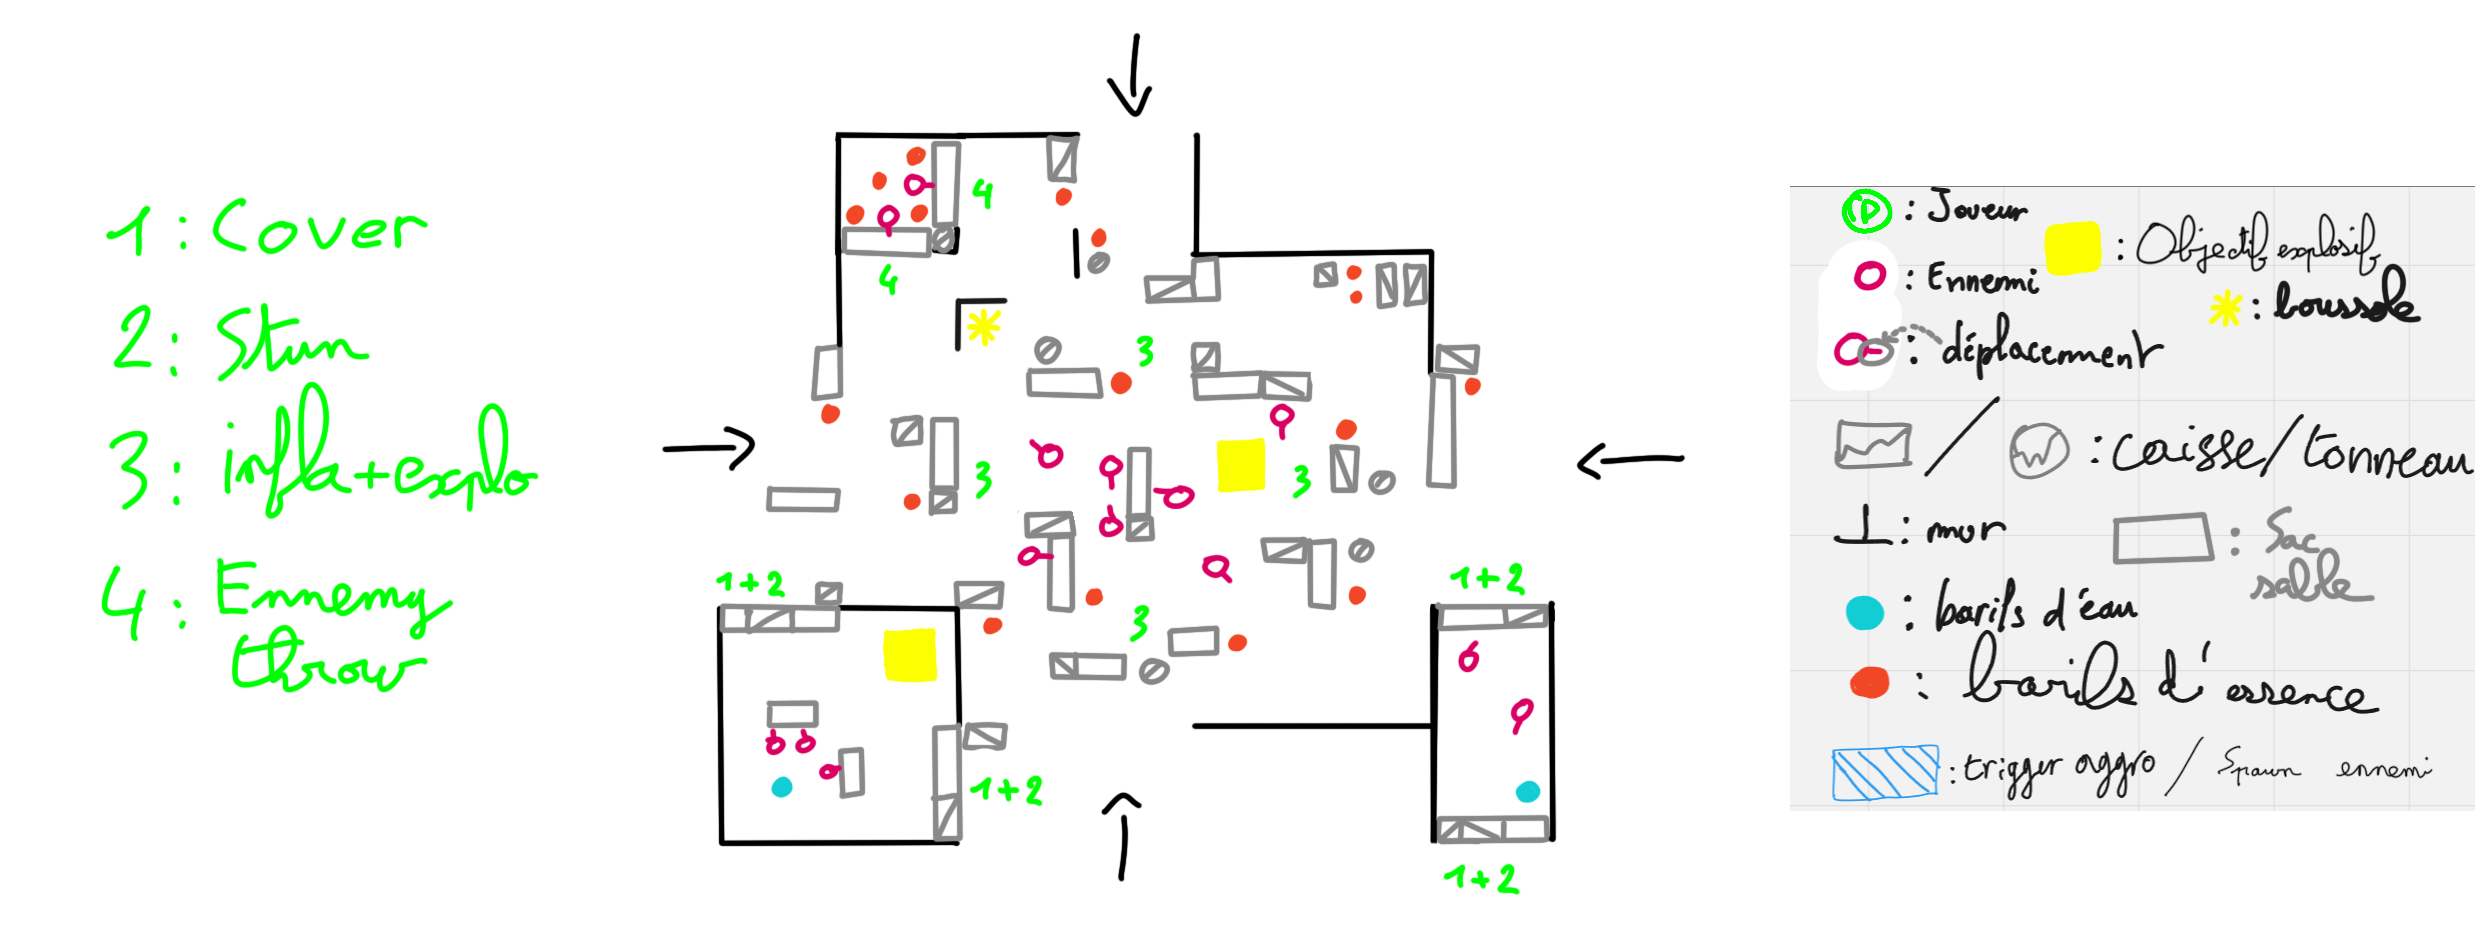 1 : Cover
2 : Stun
3 : infla+explo
4 : Ennemy
throw
4
4
3
3
3
1+2
1+2
3
1+2
1+2
: Joueur
: Objectif explosif
: Ennemi
: boussole
: déplacement
/ : caisse/tonneau
: mur
: Sac
sable
: barils d'eau
: barils d'essence
: trigger aggro / Spawn ennemi